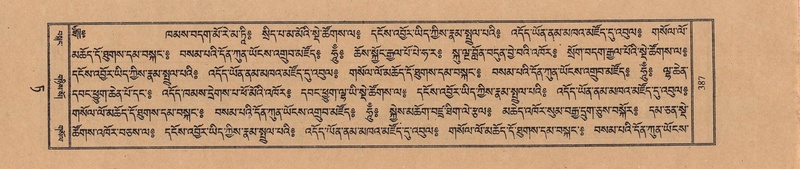 ༄༅། ཁམས་བདག་མོ་རེ་མ་ཏཱི༔ སྲིད་པ་མ་མོའི་སྡེ་ཚོགས་ལ༔ དངོས་འབྱོར་ཡིད་ཀྱིས་རྣམ་སྤྲུལ་པའི༔ འདོད་ཡོན་ནམ་མཁའ་མཛོད་དུ་འབུལ༔ གསོལ་ལོ་
མཆོད་དོ་ཐུགས་དམ་བསྐང་༔ བསམ་པའི་དོན་ཀུན་ཡོངས་འགྲུབ་མཛོད༔ ཧཱུྃ༔ ཆོས་སྐྱོང་རྒྱལ་པོ་པེ་ཧ་ར༔ སྐུ་ལྔ་བློན་བདུན་བྱེ་བའི་འཁོར༔ སྲོག་བདག་རྒྱལ་པོའི་སྡེ་ཚོགས་ལ༔
དངོས་འབྱོར་ཡིད་ཀྱིས་རྣམ་སྤྲུལ་པའི༔ འདོད་ཡོན་ནམ་མཁའ་མཛོད་དུ་འབུལ༔ གསོལ་ལོ་མཆོད་དོ་ཐུགས་དམ་བསྐང་༔ བསམ་པའི་དོན་ཀུན་ཡོངས་འགྲུབ་མཛོད༔ ཧཱུྃ༔ ལྷ་ཆེན་
དབང་ཕྱུག་ཆེན་པོ་དང་༔ འདོད་ཁམས་དྲེགས་པ་ཕོ་མོའི་འཁོར༔ དབང་ཕྱུག་ལྷ་ཡི་སྡེ་ཚོགས་ལ༔ དངོས་འབྱོར་ཡིད་ཀྱིས་རྣམ་སྤྲུལ་པའི༔ འདོད་ཡོན་ནམ་མཁའ་མཛོད་དུ་འབུལ༔
གསོལ་ལོ་མཆོད་དོ་ཐུགས་དམ་བསྐང་༔ བསམ་པའི་དོན་ཀུན་ཡོངས་འགྲུབ་མཛོད༔ ཧཱུྃ༔ སྐྱེས་མཆོག་བཛྲ་ཐིག་ལེ་རྩལ༔ མཆེད་འཁོར་སུམ་བརྒྱ་དྲུག་ཅུས་བསྐོར༔ དམ་ཅན་སྡེ་
ཚོགས་འཁོར་བཅས་ལ༔ དངོས་འབྱོར་ཡིད་ཀྱིས་རྣམ་སྤྲུལ་པའི༔ འདོད་ཡོན་ནམ་མཁའ་མཛོད་དུ་འབུལ༔ གསོལ་ལོ་མཆོད་དོ་ཐུགས་དམ་བསྐང་༔ བསམ་པའི་དོན་ཀུན་ཡོངས་
387